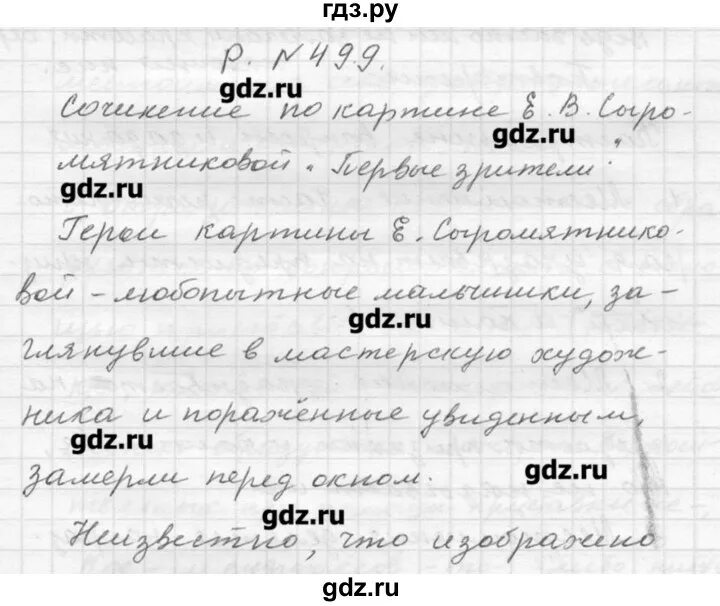 гдз.ру
Р. №499.
gdz.ru
Сочинение по картине Е. В. Сыро-
gdz.ru
мятниковой "Первые зрители"
gdz.ru
Герои картины Е. Сыромятнико-
вой – любопытные малышики, за-
gdz.ru
глянувшие в мастерскую худож-
ника и поражённые увиденным,
gdz.ru
замерли перед окном.
gdz.ru
gdz.ru
Неизвестно, что изображено
gdz.ru